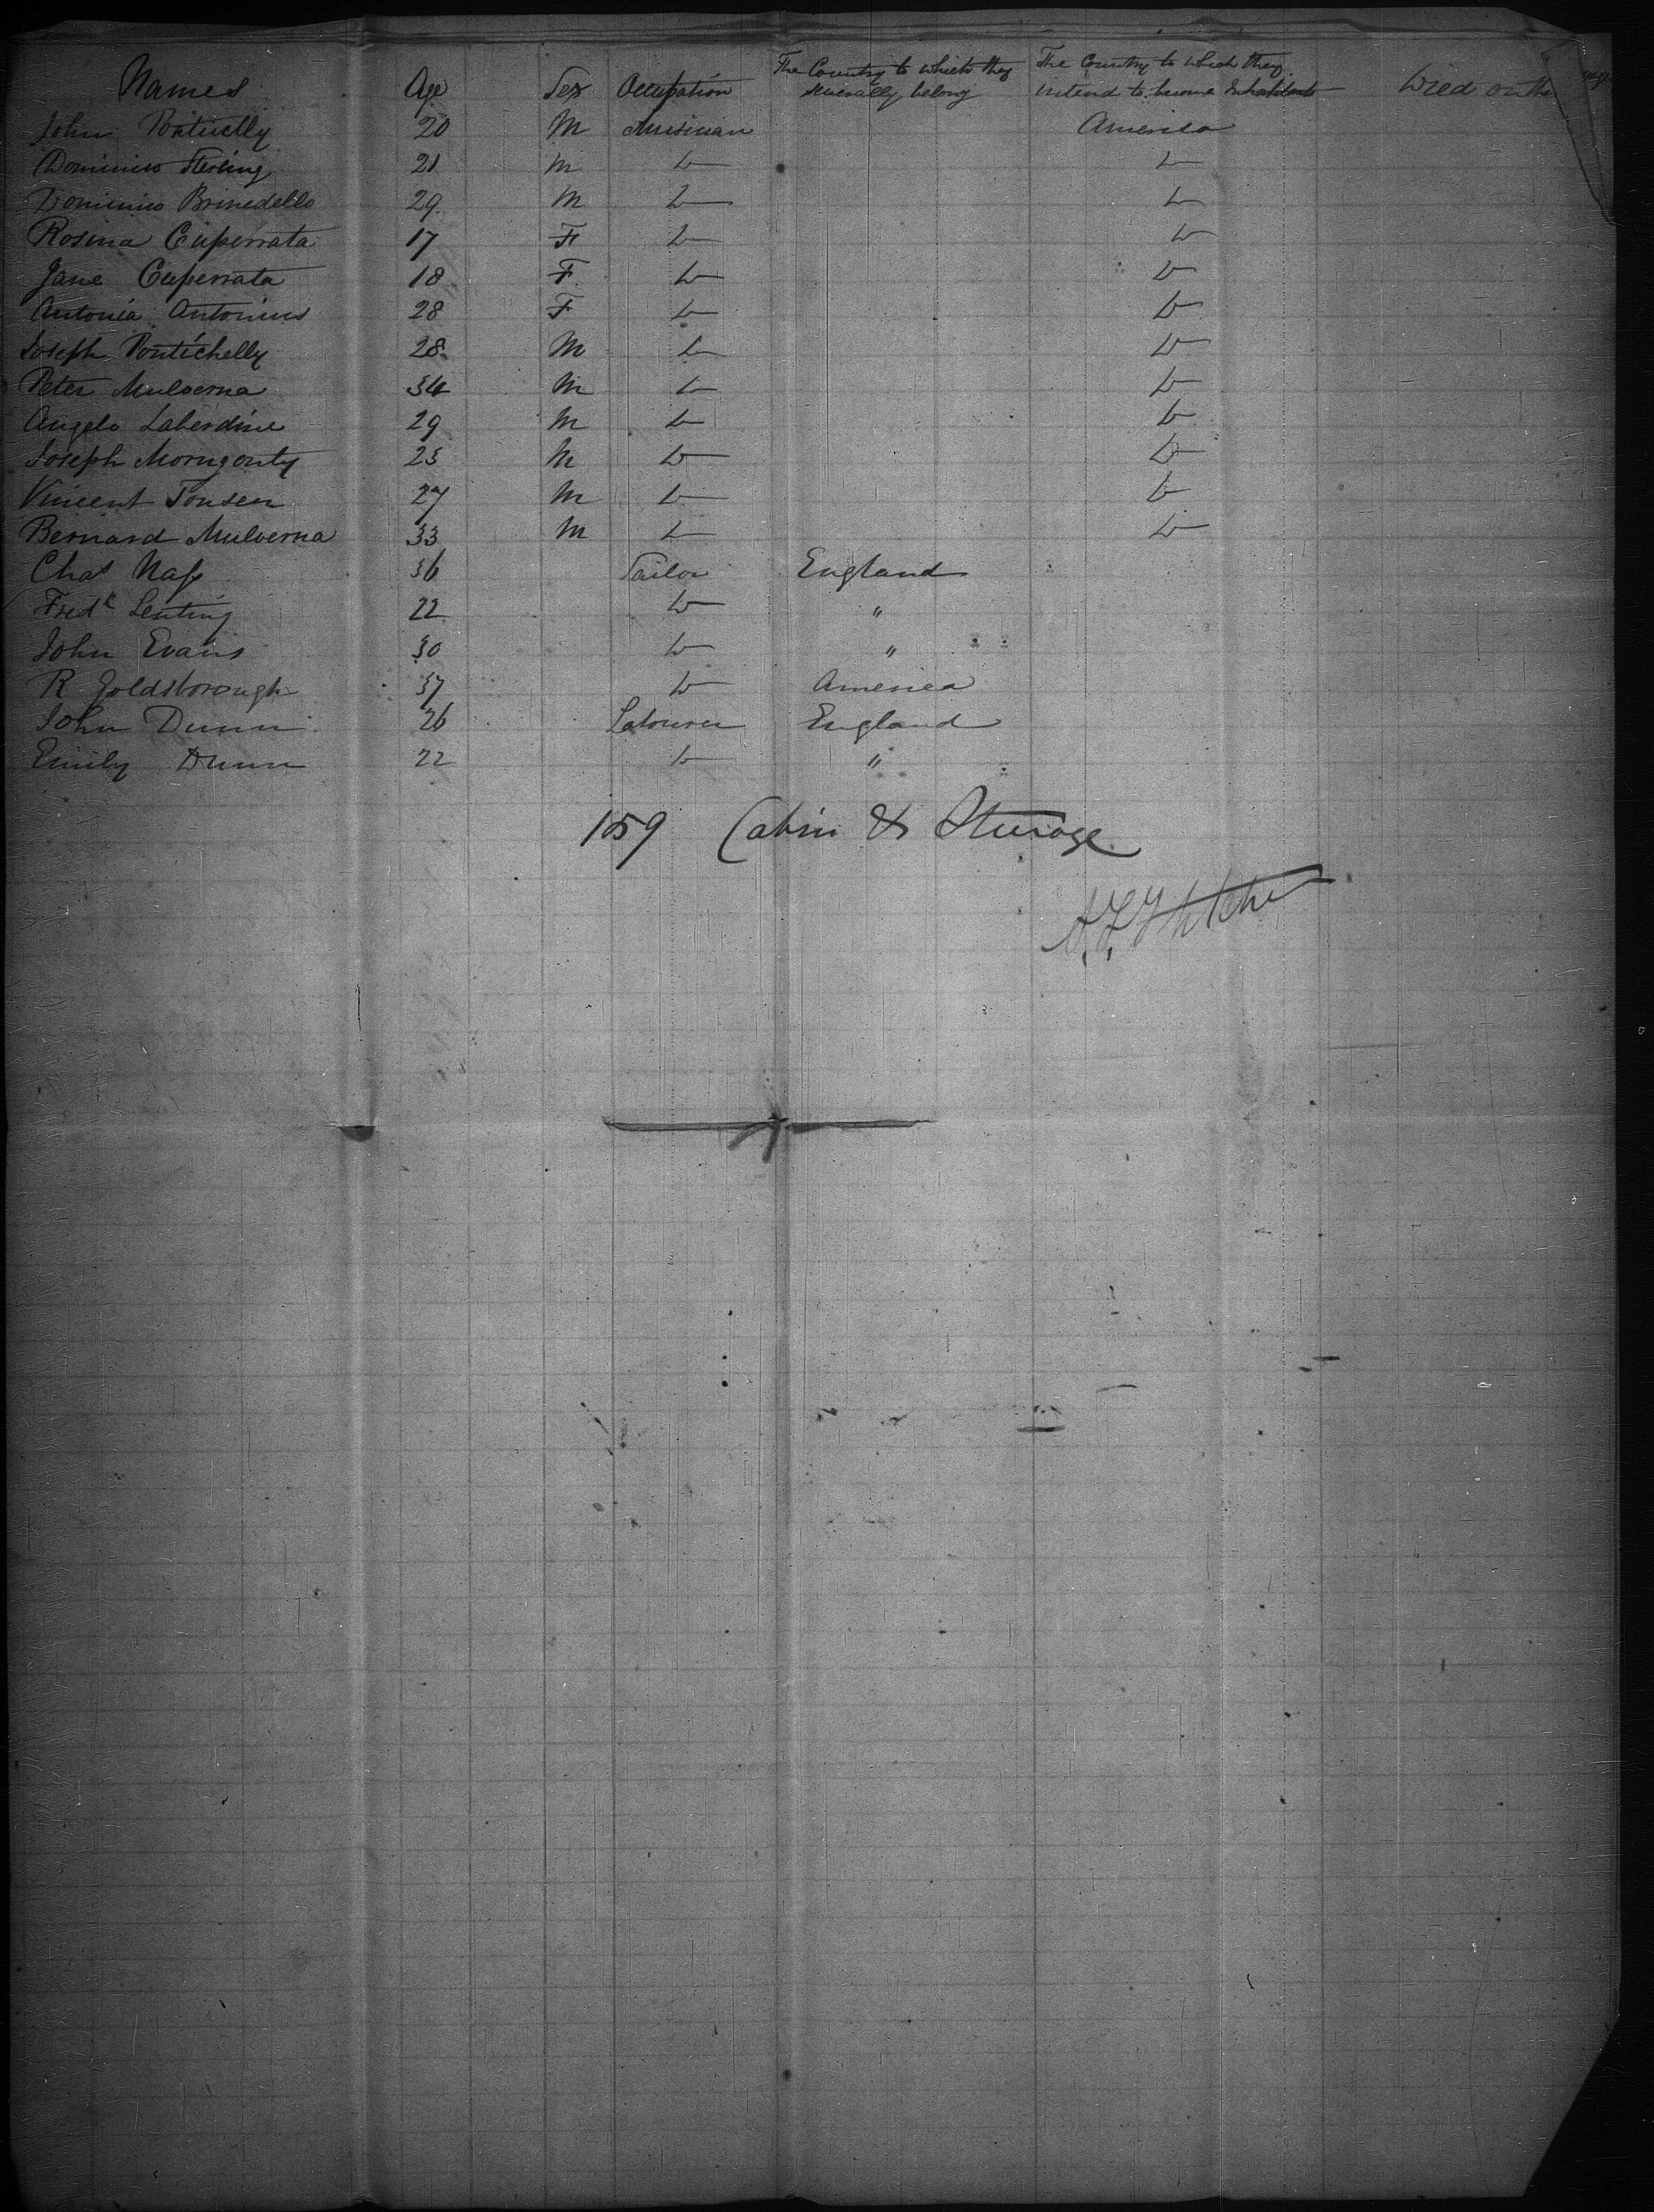 Names Age Sex Occupation The Country to which they severally belong The Country to which they intend to become Inhabitants Died on the
John Ponticelly 20 M Musician America
Dominico Sterling 21 M Do Do
Dominico Brinedello 29 M Do Do
Rosina Cuperrata 17 F Do Do
Jane Cuperrata 18 F Do Do
Antonia Antonius 28 F Do Do
Joseph Pontichelly 28 M Do Do
Peter Mulverna 34 M Do Do
Angelo Laberdine 29 M Do Do
Joseph Morngonty 25 M Do Do
Vincent Tonsen 27 M Do Do
Bernard Mulverna 33 M Do Do
Chas Naff 36 Sailor England
Fredk Senting 22 Do "
John Evans 30 Do "
R Goldsborough 37 Do America
John Dunn 26 Labourer England
Emily Dunn 22 Do "
159 Cabin & Steerage